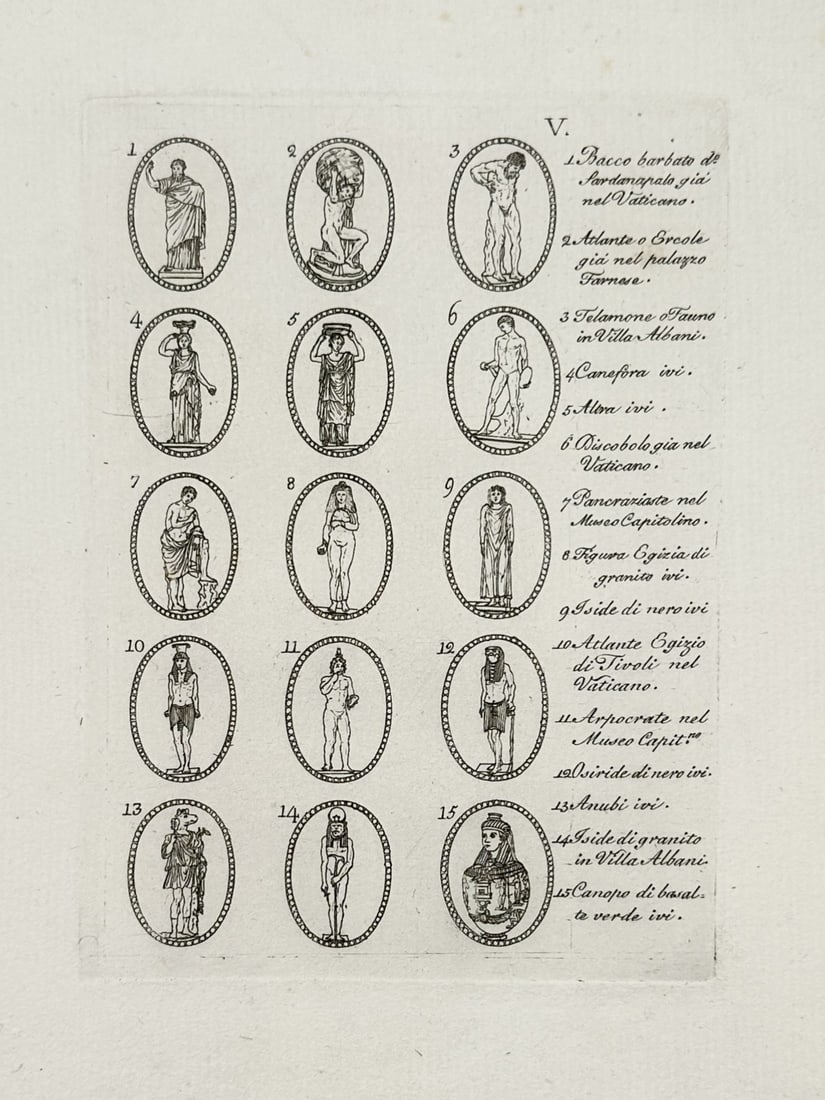 V.
1 2 3
4 5 6
7 8 9
10 11 12
13 14 15
1 Bacco barbato d.º
Sardanapalo giá
nel Vaticano.
2 Atlante o Ercole
giá nel palazzo
Farnese.
3 Telamone o Fauno
in Villa Albani.
4 Canefora ivi.
5 Altra ivi.
6 Discobolo gia nel
Vaticano.
7 Pancraziaste nel
Museo Capitolino.
8 Figura Egizia di
granito ivi.
9 Iside di nero ivi
10 Atlante Egizio
di Tivoli nel
Vaticano.
11 Arpocrate nel
Museo Capit.no
12 Osiride di nero ivi.
13 Anubi ivi.
14 Iside di granito
in Villa Albani.
15 Canopo di basal=
te verde ivi.